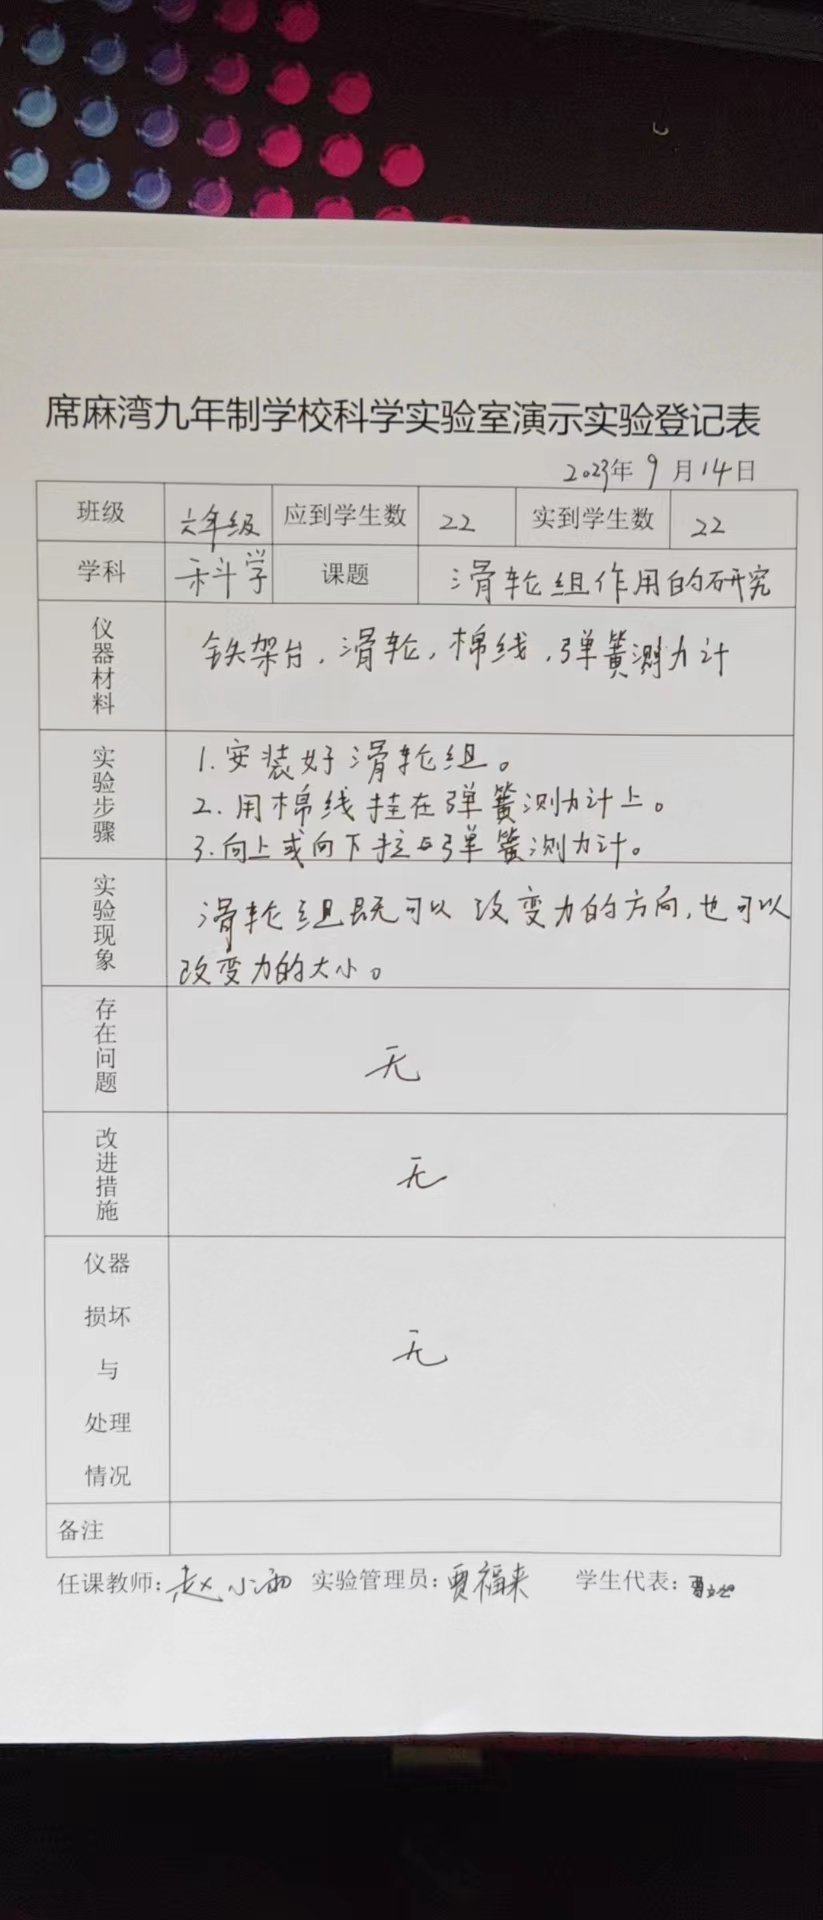 席麻湾九年制学校科学实验室演示实验登记表
2023年 9 月14日
班级 六年级 应到学生数 22 实到学生数 22
学科 科学 课题 滑轮组作用的研究
仪器材料 铁架台,滑轮,棉线,弹簧测力计
实验步骤
1.安装好滑轮组。
2.用棉线挂在弹簧测力计上。
3.向上或向下拉动弹簧测力计。
实验现象
滑轮组既可以改变力的方向,也可以
改变力的大小。
存在问题 无
改进措施 无
仪器
损坏
与
处理
情况
无
备注
任课教师:赵小雨 实验管理员:贾福来 学生代表: